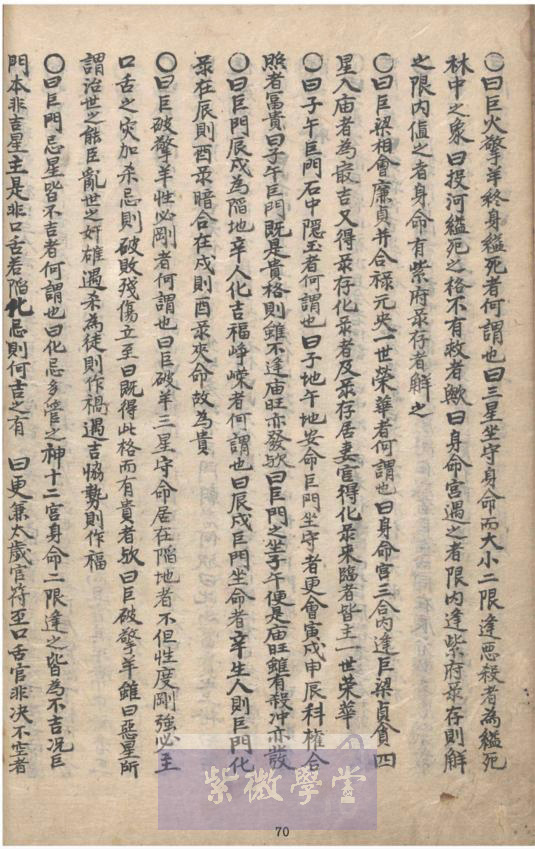 〇曰巨火擎羊終身縊死者何謂也曰三星坐守身命而大小二限逢惡殺者為縊死
林中之象曰投河縊死之格不有救者歟曰身命宮遇之者限內逢紫府彔存則解
之限內値之者身命有紫府彔存者解之
〇曰巨梁相會廉貞并合祿元夾一世榮華者何謂也曰身命宮三合內逢巨梁貞貪四
星入庙者為最吉又得彔存化彔者及彔存居妻宦得化彔來臨者皆主一世荣華
〇曰子午巨門石中隱玉者何謂也曰子地午地安命巨門坐守者更會寅戌申辰科權合
照者冨貴曰子午巨門既是貴格則雖不逢庙旺亦發欤曰巨門之坐子午便是庙旺雖有殺冲亦發
〇曰巨門辰戌為陷地辛人化吉福崢嶸者何謂也曰辰戌巨門坐命者辛生人則巨門化
彔在辰則酉彔暗合在戌則酉彔夾命故為貴
〇曰巨破擎羊性必剛者何謂也曰巨破羊三星守命居在陷地者不但性度剛強必主
口舌之灾加杀忌則破敗殘傷立至曰既得此格而有貴者欤曰巨破擎羊雖曰惡星所
謂治世之能臣亂世之奸雄遇杀為徒則作禍遇吉恊勢則作福
〇曰巨門忌星皆不吉者何謂也曰化忌多管之神十二宮身命二限逢之皆為不吉况巨
門本非吉星主是非口舌若陷化忌則何吉之有 曰更兼太歲官符至口舌官非决不空者
紫微學堂
70